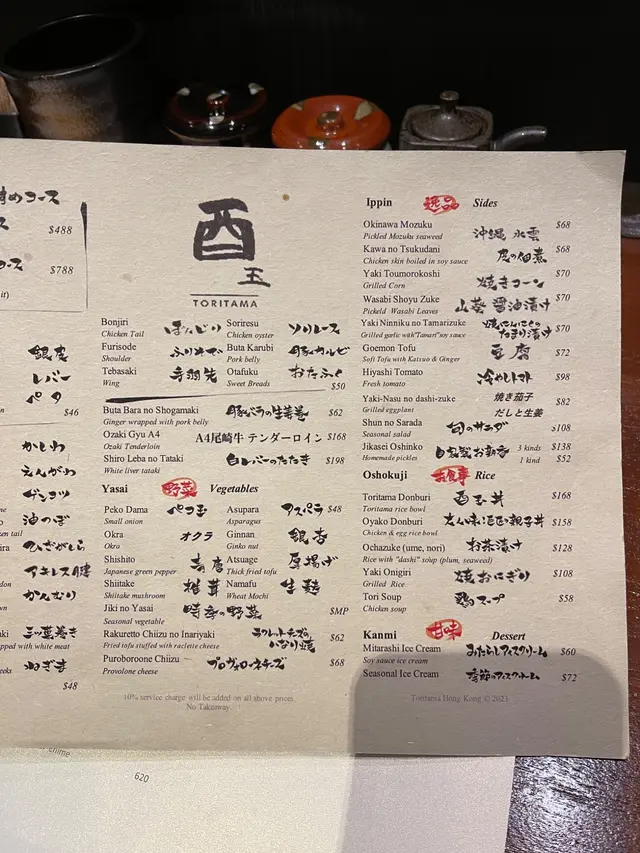 すめコース
ス
$488
コース
$788
it)
銀皮
レバー
ペタ
$46
かしわ
えんがわ
ゲンコツ
油つぼ
en tail
ira
ひざがしら
アキレス腱
don
かんむり
own
aki 三ツ葉巻き
pped with white meat
ねぎま
eeks
$48
酉
玉
TORITAMA
Bonjiri ぼんじり
Chicken Tail
Soriresu ソリレース
Chicken oyster
Furisode ふりそで
Shoulder
Buta Karubi 豚カルビ
Pork belly
Tebasaki 手羽先
Wing
Otafuku おたふく
Sweet Breads
$50
Buta Bara no Shogamaki 豚バラの生姜巻 $62
Ginger wrapped with pork belly
Ozaki Gyu A4 A4尾崎牛 テンダーロイン $168
Ozaki Tenderloin
Shiro Leba no Tataki 白レバーのたたき $198
White liver tataki
Yasai 野菜 Vegetables
Peko Dama ペコ玉
Small onion
Asupara アスパラ $48
Asparagus
Okra オクラ
Okra
Ginnan 銀杏
Ginko nut
Shishito
Japanese green pepper
Atsuage 厚揚げ
Thick fried tofu
Shiitake 椎茸
Shiitake mushroom
Namafu 生麩
Wheat Mochi
Jiki no Yasai 時季の野菜 $MP
Seasonal vegetable
Rakuretto Chiizu no Inariyaki ラクレットチーズのいなり焼 $62
Fried tofu stuffed with raclette cheese
Puroboroone Chiizu プロヴォローネチーズ $68
Provolone cheese
10% service charge will be added on all above prices.
No Takeaway.
Ippin 逸品 Sides
Okinawa Mozuku 沖縄 水雲 $68
Pickled Mozuku seaweed
Kawa no Tsukudani 皮の佃煮 $68
Chicken skin boiled in soy sauce
Yaki Toumorokoshi 焼きコーン $70
Grilled Corn
Wasabi Shoyu Zuke 山葵 醤油漬け $70
Pickeld Wasabi Leaves
Yaki Ninniku no Tamarizuke 焼にんにくのたまり漬け $70
Grilled garlic with"Tamari"soy sauce
Goemon Tofu 豆腐 $72
Soft Tofu with Katsuo & Ginger
Hiyashi Tomato 冷やしトマト $98
Fresh tomato
Yaki-Nasu no dashi-zuke 焼き茄子 $82
Grilled eggplant だしと生姜
Shun no Sarada 旬のサラダ $108
Seasonal salad
Jikasei Oshinko 自家製お新香 3 kinds $138
Homemade pickles 1 kind $52
Oshokuji お食事 Rice
Toritama Donburi 酉玉丼 $168
Toritama rice bowl
Oyako Donburi 親子丼 $158
Chicken & egg rice bowl
Ochazuke (ume, nori) お茶漬け $128
Rice with "dashi" soup (plum, seaweed)
Yaki Onigiri 焼おにぎり $108
Grilled Rice
Tori Soup 鶏スープ $58
Chicken soup
Kanmi 甘味 Dessert
Mitarashi Ice Cream みたらしアイスクリーム $60
Soy sauce ice cream
Seasonal Ice Cream 季節のアイスクリーム $72
Toritama Hong Kong © 2023
chime
620